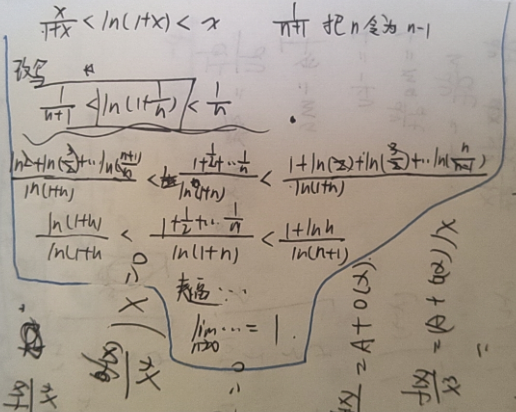 x/(1+x) < ln(1+x) < x    1/(n+1) 把n令为n-1
改写
1/(n+1) < ln(1+1/n) < 1/n
(ln2+ln(3/2)+...ln((n+1)/n))/ln(1+n) < (1+1/2+...1/n)/ln(1+n) < (1+ln(2)+ln(3/2)+...ln(n/(n-1)))/ln(1+n)
ln(1+n)/ln(1+n < (1+1/2+...1/n)/ln(1+n) < (1+ln n)/ln(n+1)
夹逼...
lim n→∞ ... = 1.
= A + o(x)
f(x)/x = A + o(x)/x